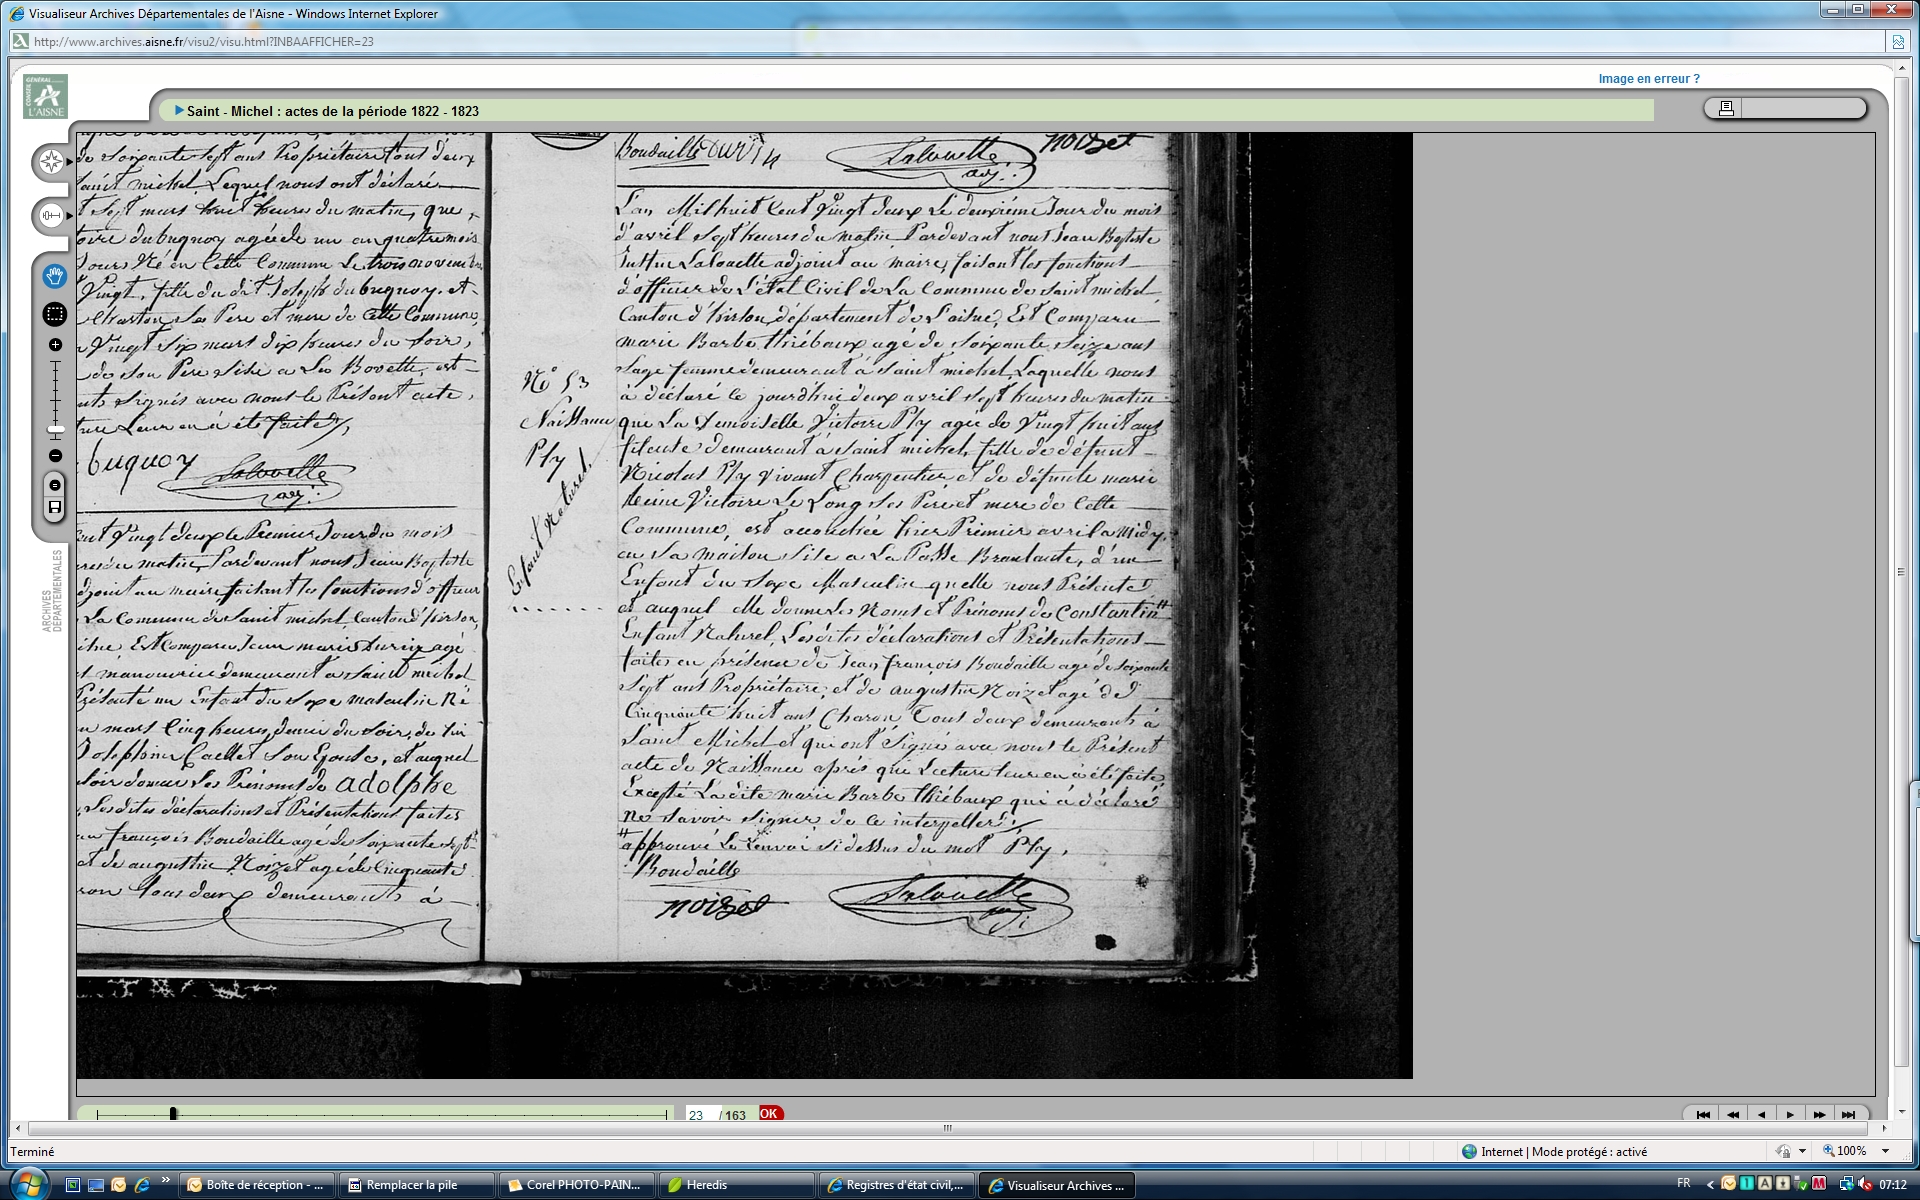 Visualiseur Archives Départementales de l'Aisne - Windows Internet Explorer
http://www.archives.aisne.fr/visu2/visu.html?INBAAFFICHER=23
Image en erreur ?
CONSEIL GÉNÉRAL
L'AISNE
Saint - Michel : actes de la période 1822 - 1823
ARCHIVES
DÉPARTEMENTALES
de Soixante Sept ans Propriétaire tous deux
Saint michel Lequel nous ont déclaré
t Sept mars huit heures du matin, que
toire dubuquoy agée de un an quatre mois
Jours Né en Cette Commune Le trois novembre
Vingt, fille du dit Joseph dubuquoy, et
Charton Ses Pere et mere de Cette Commune,
Vingt Six mars dix heures du Soir,
de Son Pere Sise a Les Bovette, ont
Signés avec nous le Présent acte,
ture Leur en à été faite,
buquoy
Lalouette
adj:
Cent Vingt deux le Premier Jour du mois
du matin, Pardevant nous Jean Baptiste
djoint au maire faisant les fonctions d'officier
La Commune de Saint michel Canton d'hirson,
Est Comparu Jean marie Durin agé
manouvrier demeurant a Saint michel
Présenté un Enfant du Sexe masculin Né
mars Cinq heures demie du Soir, de lui
Josephine Caillet Son Epouse, et auquel
loir donner Les Prénoms de adolphe
Les dites déclarations et Présentations faites
françois Boudaille agé de Soixante Sept
et de augustin Noizet agé de Cinquante
ron tous deux demeurants à
Boudaille
Durin
Lalouette
adj:
noizet
N° 53
Naissance
Ply
Enfant Naturel.
L'an Mil huit Cent Vingt deux Le deuxième Jour du mois
d'avril Sept heures du matin Pardevant nous Jean Baptiste
Justin Lalouette adjoint au maire, faisant les fonctions
d'officier de L'état Civil de La Commune de Saint michel
Canton d'hirson, département de L'aisne, Est Comparu
marie Barbe thiébaux agé de Soixante Seize ans
Sage femme demeurant à Saint michel, Laquelle nous
à déclaré ce jourd'hui deux avril Sept heures du matin
que La Demoiselle Victoire Ply agée de Vingt huit ans
fileuse demeurant à Saint michel, fille de défunt
Nicolas Ply Vivant Charpentier et de défunte marie
Reine Victoire Le Long Ses Pere et mere de Cette
Commune, est accouchée hier Premier avril a Midy,
en Sa maison Sise a La Passe Branlante, d'un
Enfant du Sexe Masculin quelle nous Présente
et auquel elle donne Les Noms et Prénoms de Constantin #
Enfant Naturel, Les dites déclarations et Présentations
faite en présence de Jean françois Boudaille agé de Soixante
Sept ans Propriétaire, et de augustin Noizet agé de
Cinquante huit ans Charon Tous deux demeurants à
Saint Michel et qui ont Signés avec nous le Présent
acte de Naissance après que Lecture leur en à été faite,
Excepté La dite marie Barbe thiébaux qui à déclaré
Ne Savoir Signer de ce interpellée.
# approuvé Le Renvoi Si dessus du mot Ply,
Boudaille
noizet
Lalouette
adj:
23 / 163 OK
Terminé
Internet | Mode protégé : activé
100%
Boîte de réception - ...
Remplacer la pile
Corel PHOTO-PAIN...
Heredis
Registres d'état civil,...
Visualiseur Archives ...
FR
07:12